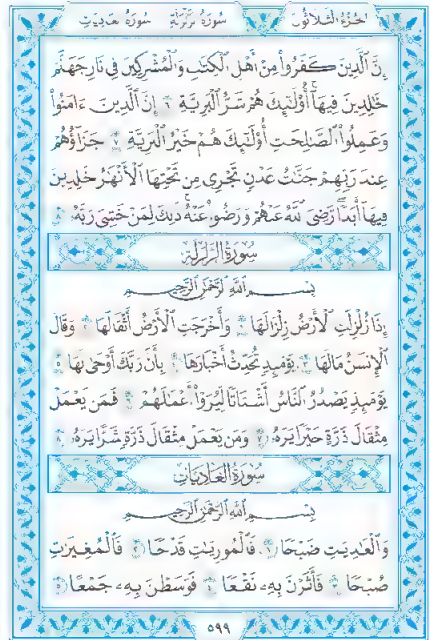 الجزء الثلاثون سورة زلزلة سورة عاديات
إِنَّ ٱلَّذِينَ كَفَرُوا۟ مِنْ أَهْلِ ٱلْكِتَٰبِ وَٱلْمُشْرِكِينَ فِى نَارِ جَهَنَّمَ
خَٰلِدِينَ فِيهَآ أُو۟لَٰٓئِكَ هُمْ شَرُّ ٱلْبَرِيَّةِ ٦ إِنَّ ٱلَّذِينَ ءَامَنُوا۟
وَعَمِلُوا۟ ٱلصَّٰلِحَٰتِ أُو۟لَٰٓئِكَ هُمْ خَيْرُ ٱلْبَرِيَّةِ ٧ جَزَآؤُهُمْ
عِندَ رَبِّهِمْ جَنَّٰتُ عَدْنٍ تَجْرِى مِن تَحْتِهَا ٱلْأَنْهَٰرُ خَٰلِدِينَ
فِيهَآ أَبَدًا رَّضِىَ ٱللَّهُ عَنْهُمْ وَرَضُوا۟ عَنْهُ ذَٰلِكَ لِمَنْ خَشِىَ رَبَّهُۥ ٨
سُورَةُ الزَّلْزَلَةِ
بِسْمِ ٱللَّهِ ٱلرَّحْمَٰنِ ٱلرَّحِيمِ
إِذَا زُلْزِلَتِ ٱلْأَرْضُ زِلْزَالَهَا ١ وَأَخْرَجَتِ ٱلْأَرْضُ أَثْقَالَهَا ٢ وَقَالَ
ٱلْإِنسَٰنُ مَا لَهَا ٣ يَوْمَئِذٍ تُحَدِّثُ أَخْبَارَهَا ٤ بِأَنَّ رَبَّكَ أَوْحَىٰ لَهَا ٥
يَوْمَئِذٍ يَصْدُرُ ٱلنَّاسُ أَشْتَاتًا لِّيُرَوْا۟ أَعْمَٰلَهُمْ ٦ فَمَن يَعْمَلْ
مِثْقَالَ ذَرَّةٍ خَيْرًا يَرَهُۥ ٧ وَمَن يَعْمَلْ مِثْقَالَ ذَرَّةٍ شَرًّا يَرَهُۥ ٨
سُورَةُ العَادِيَاتِ
بِسْمِ ٱللَّهِ ٱلرَّحْمَٰنِ ٱلرَّحِيمِ
وَٱلْعَٰدِيَٰتِ ضَبْحًا ١ فَٱلْمُورِيَٰتِ قَدْحًا ٢ فَٱلْمُغِيرَٰتِ
صُبْحًا ٣ فَأَثَرْنَ بِهِۦ نَقْعًا ٤ فَوَسَطْنَ بِهِۦ جَمْعًا ٥
٥٩٩